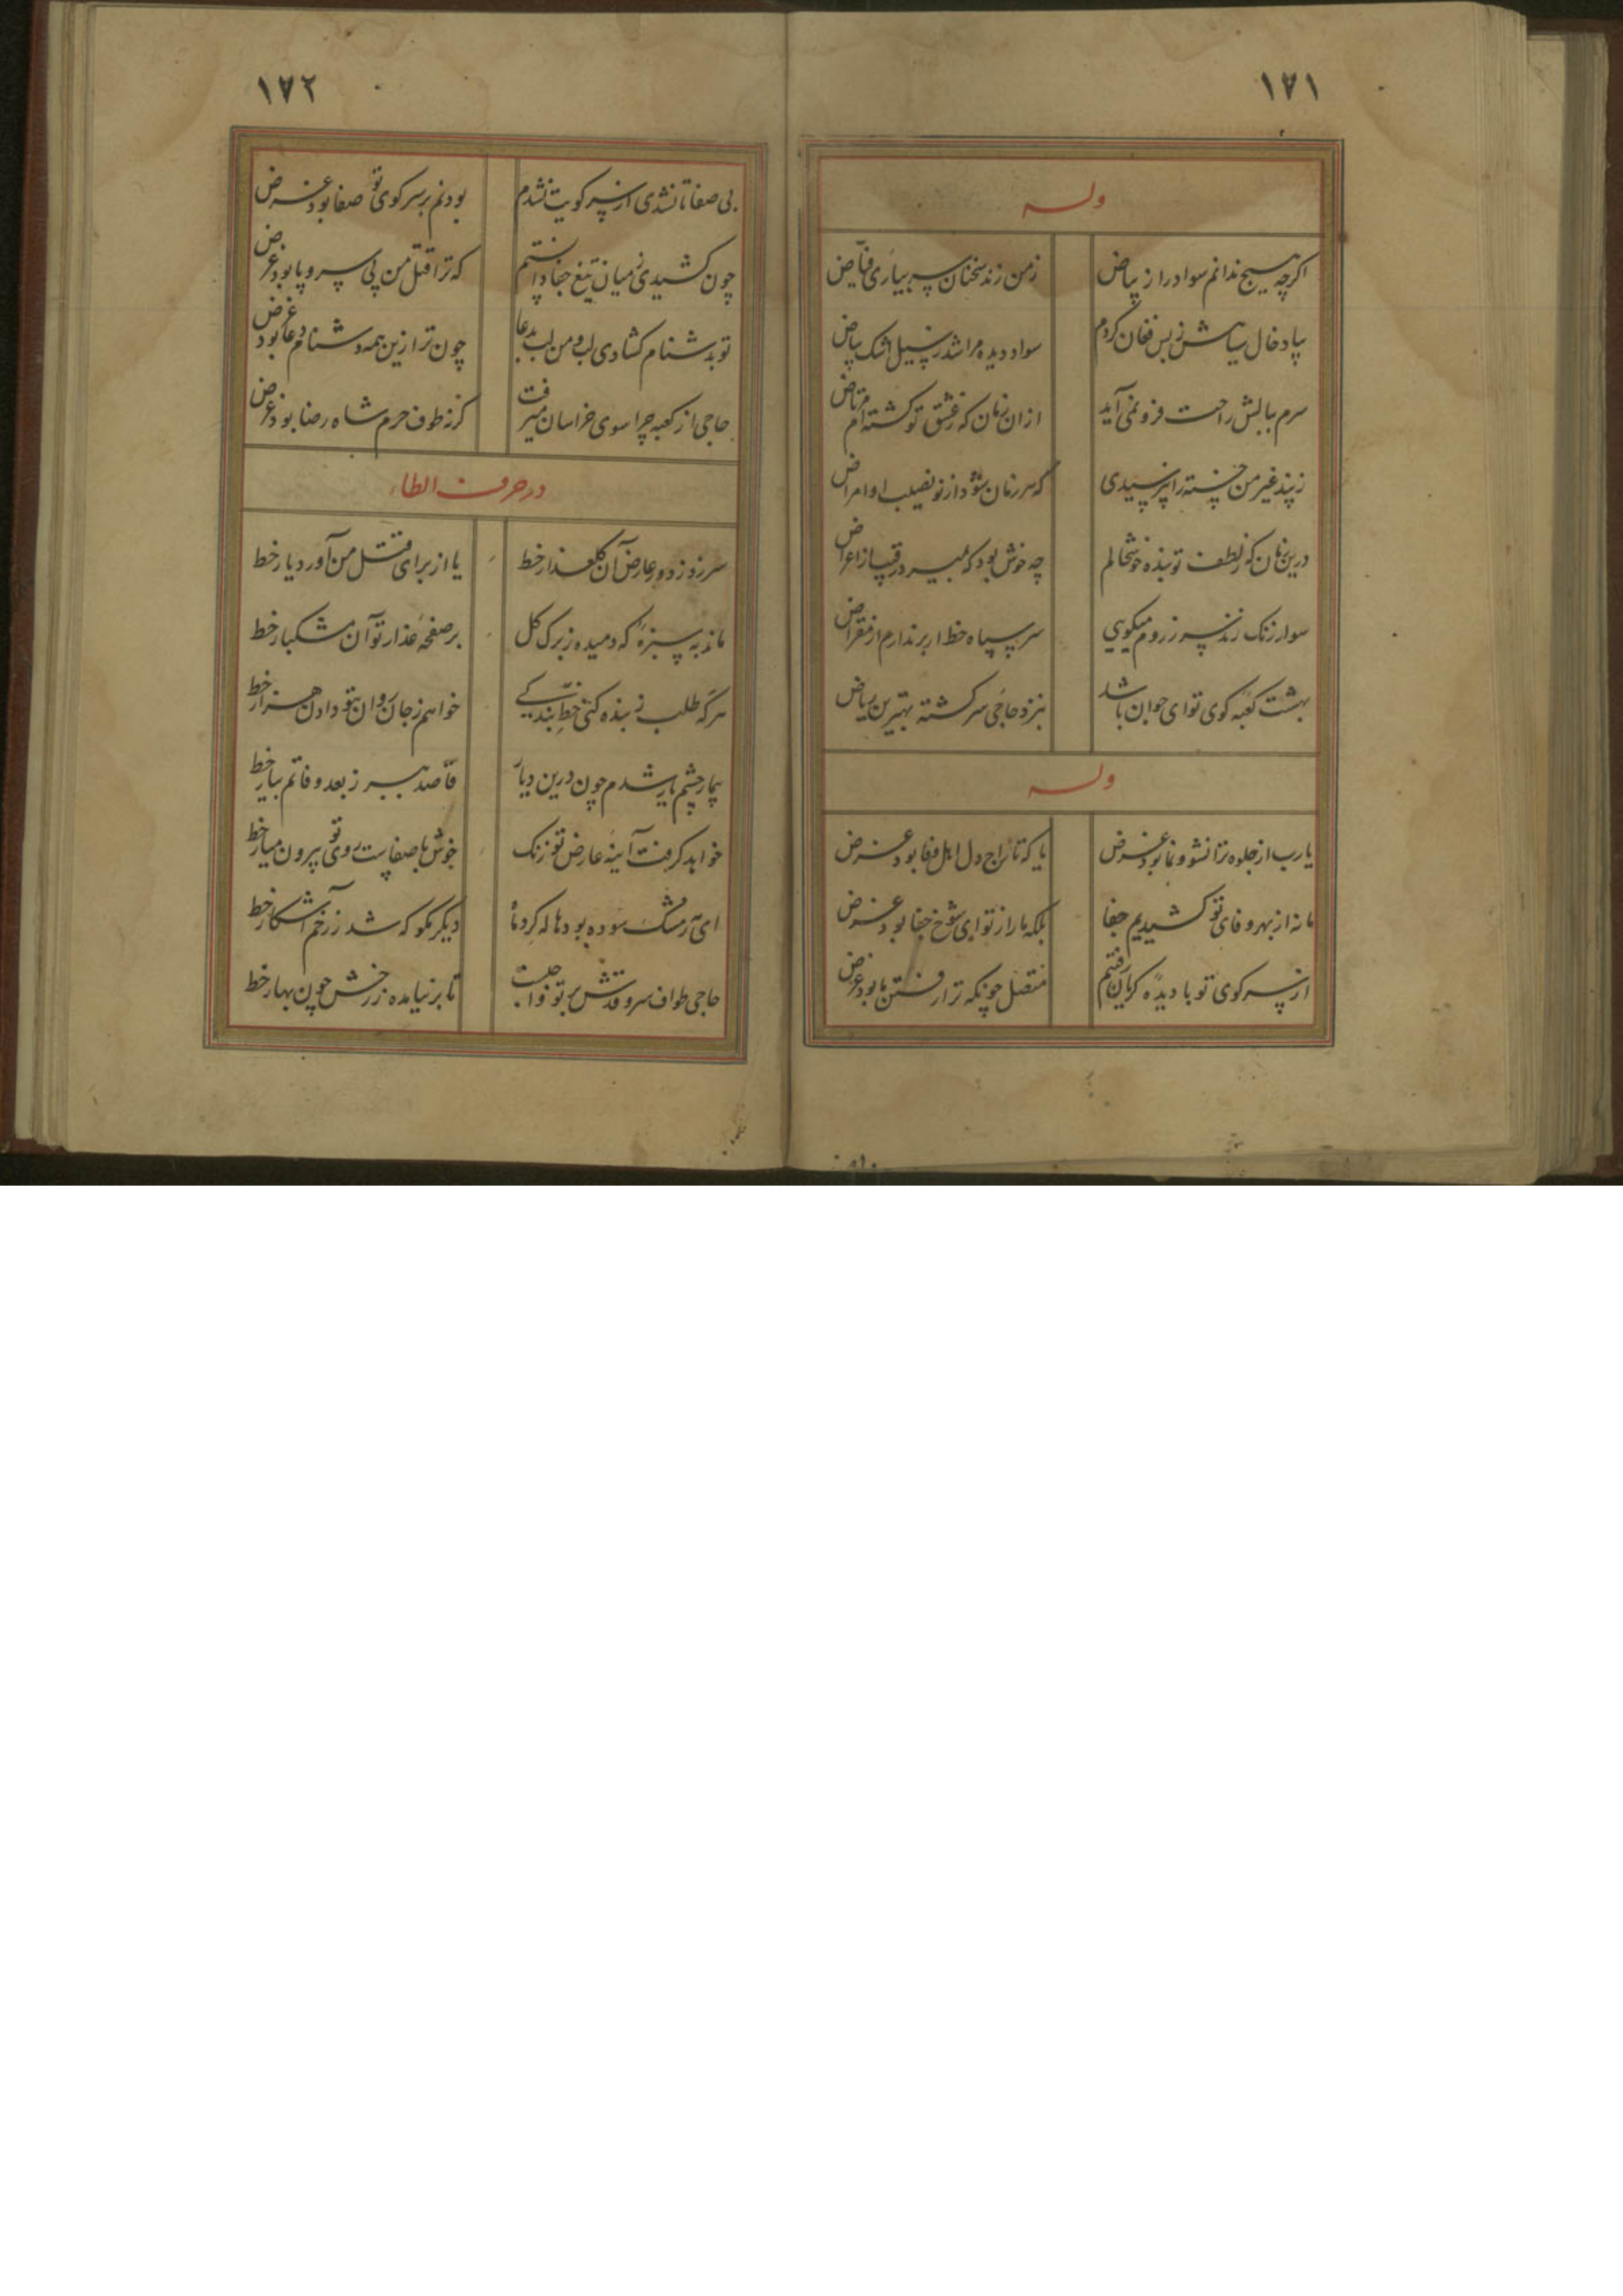 ١٧١
وله
اکرچه هیچ ندانم سواد را ز بیاض
زمن زند سخنان سر بیاری فیاض
بیاد خال سیاهش ز بس فغان کردم
سواد دیده مرا شد ز سیل اشک بیاض
سرم ببالش راحت فرو نمی آید
از ان زمان که ز عشق تو کشته ام مرتاض
ز پند غیر من خسته را نپرسیدی
که هر زمان شود از تو نصیب او امراض
درین زمان که ز لطف تو بنده خوشحالم
چه خوش بود که بمیرد رقیب از اعراض
سوار زنک زند سر ز روم میکویی
سر سیاه خط ار برندارم از مقراض
بهشت کعبه کوی تو ای جوان باشد
بنزد حاجی سرکشته بهترین ریاض
وله
یارب از جلوه ترا نشو و نما بود غرض
یا که تاراج دل اهل وفا بود غرض
ما نه از بهر وفای تو کشیدیم جفا
بلکه ما را ز تو ای شوخ جفا بود غرض
از سر کوی تو با دیده کریان رفتم
متصل چونکه ترا رفتن ما بود غرض
١٧٢
بی صفا تا نشدی از سر کویت نشدم
بودنم بر سر کوی تو صفا بود غرض
چون کشیدی ز میان تیغ جفا دانستم
که ترا قتل من بی سر و پا بود غرض
تو بدشنام کشادی لب و من لب بدعا
چون ترا زین همه دشنام دعا بود غرض
حاجی از کعبه چرا سوی خراسان میرفت
کرنه طوف حرم شاه رضا بود غرض
در حرف الطاء
سر زد ز دور عارض آن کلعذار خط
یا از برای قتل من آورد یار خط
ماند به سبزه که دمیده ز برک کل
بر صفحه عذار تو آن مشکبار خط
هرکه طلب ز بنده کنی خط بندکی
خواهم ز جان روان بتو دادن هزار خط
بیمار چشم یار شدم چون درین دیار
قاصد ببر ز بعد وفاتم بیار خط
خواهد کرفت آینه عارض تو زنک
خوش با صفاست روی تو بیرون میار خط
ای مشک سوده بود هاله کرد ماه
دیکر مکو که شد ز رخم آشکار خط
حاجی طواف سرو قدش بر تو واجبست
تا بر نیامده ز رخش چون بهار خط